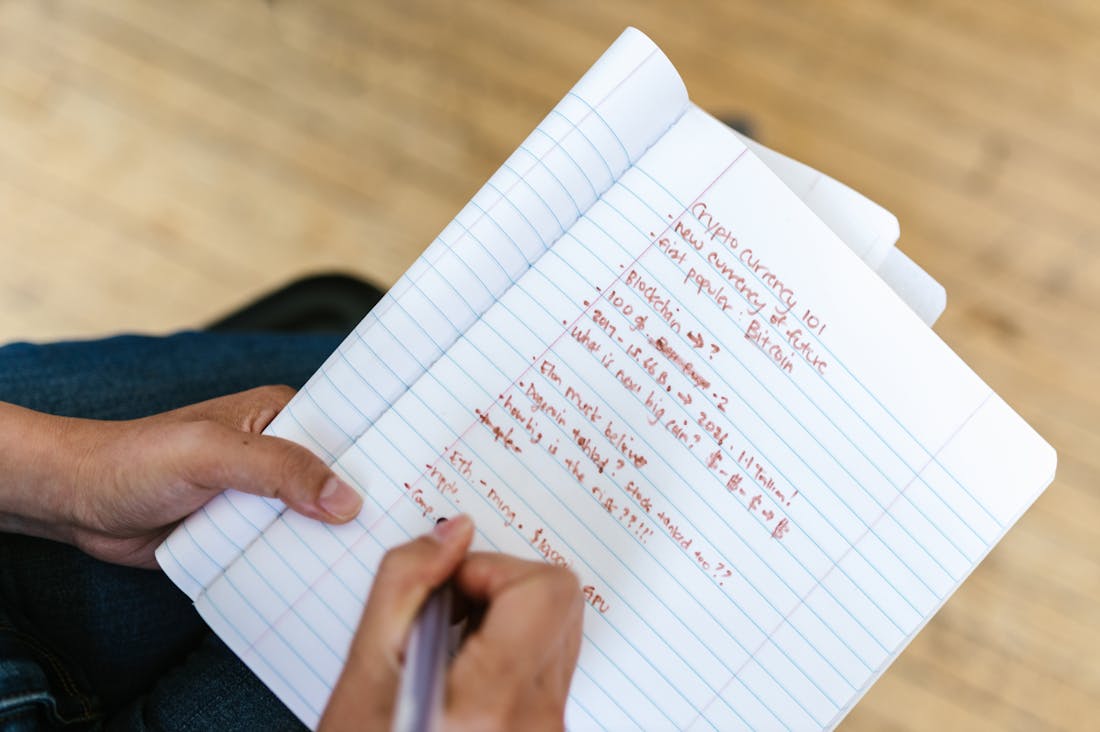 Crypto Currency 101
- new currency of future
- first populer : Bitcoin
- Blockchain → ?
- 100 $ :2
- 2017 - 15.66 B. → 2021 : 1.1 Trillion!
- What is next big coin? $ - $ - $ → $
- Elon musk believe
- Dogecoin tanked? Stock tanked too??
- how big is the risk ??!!
- maple -
- Eth. - mining. $1000 GPU
- ripple.
- Comp.